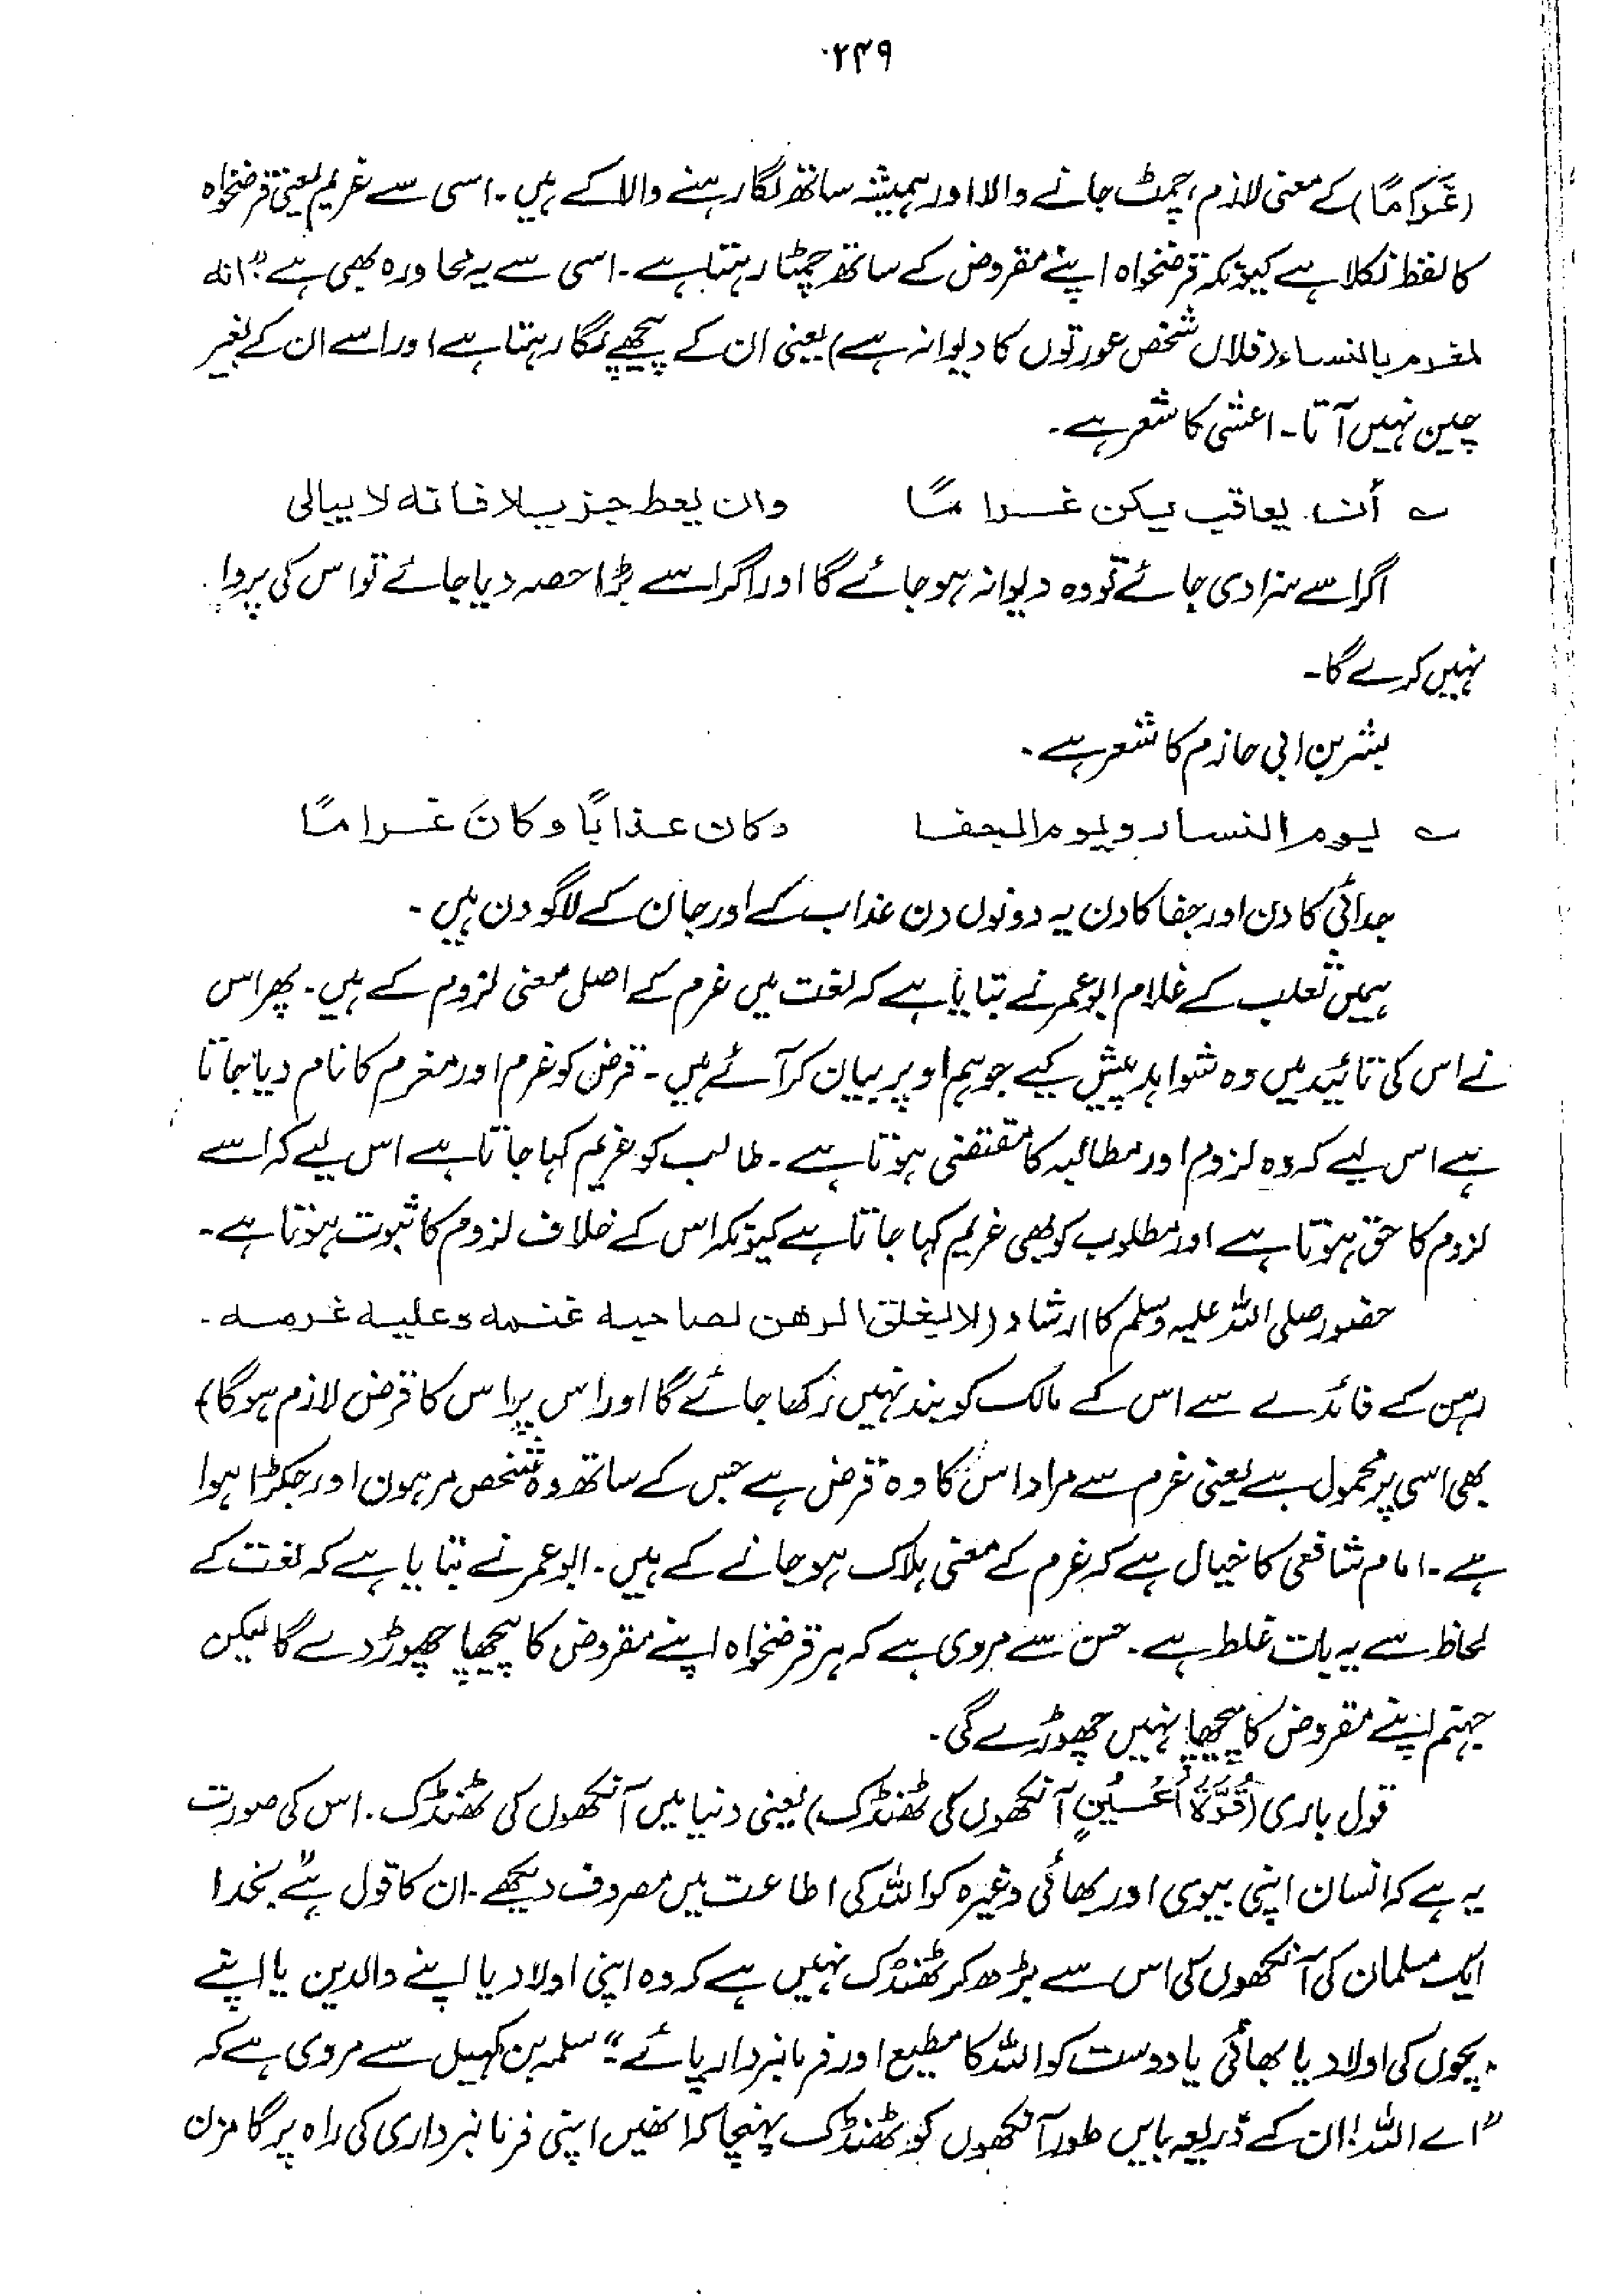 ۲۴۹
(غَرَامًا) کے معنی لازم، چمٹ جانے والا اور ہمیشہ ساتھ لگا رہنے والا کے ہیں۔ اسی سے غریم یعنی قرضخواہ
کا لفظ نکلا ہے کیونکہ قرضخواہ اپنے مقروض کے ساتھ چمٹا رہتا ہے۔ اسی سے یہ محاورہ بھی ہے "انه
لمغرم بالنساء (فلاں شخص عورتوں کا دیوانہ ہے) یعنی ان کے پیچھے لگا رہتا ہے اور اسے ان کے بغیر
چین نہیں آتا۔ اعشی کا شعر ہے۔
؎ أن يعاقب يكن غراما وان يعط جزيلا فانه لا يبالى
اگر اسے سزا دی جائے تو وہ دیوانہ ہو جائے گا اور اگر اسے بڑا حصہ دیا جائے تو اس کی پروا
نہیں کرے گا۔
بشر بن ابی حازم کا شعر ہے۔
؎ يوم النسار ويوم الجفا وكان عذابًا وكانَ غرامًا
جدائی کا دن اور جفا کا دن یہ دونوں دن عذاب کے اور جان کے لاگو دن ہیں۔
ہمیں ثعلب کے غلام ابو عمر نے بتایا ہے کہ لغت میں غرم کے اصل معنی لزوم کے ہیں۔ پھر اس
نے اس کی تائید میں وہ شواہد پیش کیے جو ہم اوپر بیان کر آئے ہیں۔ قرض کو غرم اور مغرم کا نام دیا جاتا
ہے اس لیے کہ وہ لزوم اور مطالبہ کا مقتضی ہوتا ہے۔ طالب کو غریم کہا جاتا ہے اس لیے کہ اسے
لزوم کا حق ہوتا ہے اور مطلوب کو بھی غریم کہا جاتا ہے کیونکہ اس کے خلاف لزوم کا ثبوت ہوتا ہے۔
حضور صلی اللہ علیہ وسلم کا ارشاد (لا يغلق الرهن لصاحبه غنمه وعليه غرمه۔
رہن کے فائدے سے اس کے مالک کو بند نہیں رکھا جائے گا اور اس پر اس کا قرض لازم ہوگا)
بھی اسی پر محمول ہے یعنی غرم سے مراد اس کا وہ قرض ہے جس کے ساتھ وہ شخص مرہون اور جکڑا ہوا
ہے۔ امام شافعی کا خیال ہے کہ غرم کے معنی ہلاک ہو جانے کے ہیں۔ ابو عمر نے بتایا ہے کہ لغت کے
لحاظ سے یہ بات غلط ہے۔ حسن سے مروی ہے کہ ہر قرضخواہ اپنے مقروض کا پیچھا چھوڑ دے گا لیکن
جہنم اپنے مقروض کا پیچھا نہیں چھوڑے گی۔
قول باری (قُرَّةَ أَعْيُنٍ آنکھوں کی ٹھنڈک) یعنی دنیا میں آنکھوں کی ٹھنڈک۔ اس کی صورت
یہ ہے کہ انسان اپنی بیوی اور بھائی وغیرہ کو اللہ کی اطاعت میں مصروف دیکھے۔ ان کا قول ہے "بخدا
ایک مسلمان کی آنکھوں کی اس سے بڑھ کر ٹھنڈک نہیں ہے کہ وہ اپنی اولاد یا اپنے والدین یا اپنے
بچوں کی اولاد یا بھائی یا دوست کو اللہ کا مطیع اور فرمانبردار پائے۔" سلمہ بن کہیل سے مروی ہے کہ
"اے اللہ! ان کے ذریعہ بایں طور آنکھوں کو ٹھنڈک پہنچا کہ انھیں اپنی فرمانبرداری کی راہ پر گامزن